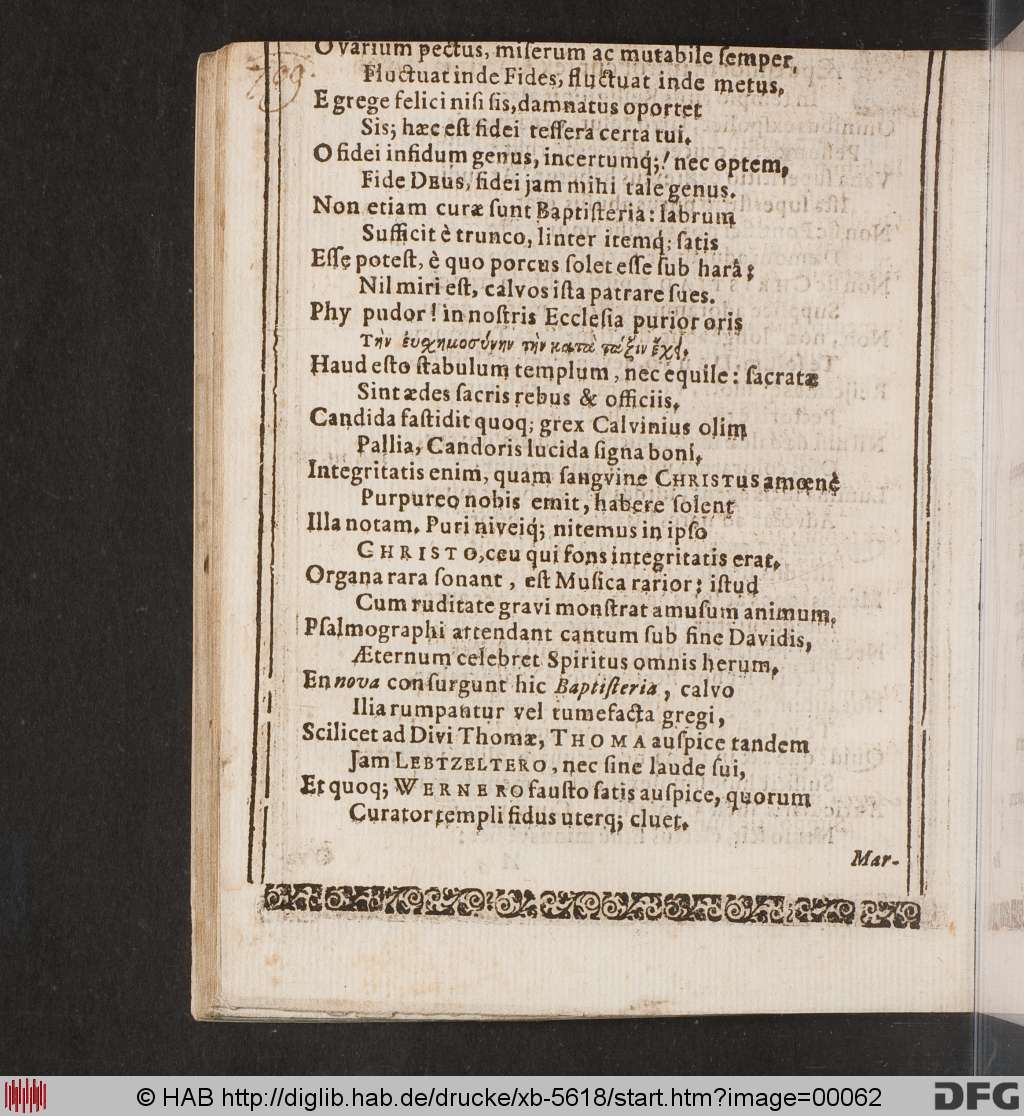 O varium pectus, miſerum ac mutabile ſemper,
Fluctuat inde Fides, fluctuat inde metus,
E grege felici niſi ſis, damnatus oportet
Sis; hæc eſt fidei teſſera certa tui.
O fidei infidum genus, incertumq́;! nec optem,
Fide DEUS, fidei jam mihi tale genus.
Non etiam curæ ſunt Baptiſteria: labrum
Sufficit è trunco, linter itemq́; ſatis
Eſſe poteſt, è quo porcus ſolet eſſe ſub harâ;
Nil miri eſt, calvos iſta patrare ſues.
Phy pudor! in noſtris Eccleſia purior oris
Τὴν ἐυσχημοσύνην τὴν κατὰ τάξιν ἔχει,
Haud eſto ſtabulum templum, nec equile: ſacratæ
Sint ædes ſacris rebus & officiis,
Candida faſtidit quoq; grex Calvinius olim
Pallia, Candoris lucida ſigna boni,
Integritatis enim, quam ſangvine CHRISTUS amœnè
Purpureo nobis emit, habere ſolent
Illa notam. Puri niveiq́; nitemus in ipſo
CHRISTO, ceu qui fons integritatis erat.
Organa rara ſonant, eſt Muſica rarior; iſtud
Cum ruditate gravi monſtrat amuſum animum,
Pſalmographi attendant cantum ſub fine Davidis,
Æternum celebret Spiritus omnis herum,
En nova conſurgunt hic Baptiſteria, calvo
Ilia rumpantur vel tumefacta gregi,
Scilicet ad Divi Thomæ, THOMA auſpice tandem
Jam LEBTZELTERO, nec ſine laude ſui,
Et quoq; WERNERO fauſto ſatis auſpice, quorum
Curator templi fidus uterq; cluet.
Mar-
© HAB http://diglib.hab.de/drucke/xb-5618/start.htm?image=00062
DFG